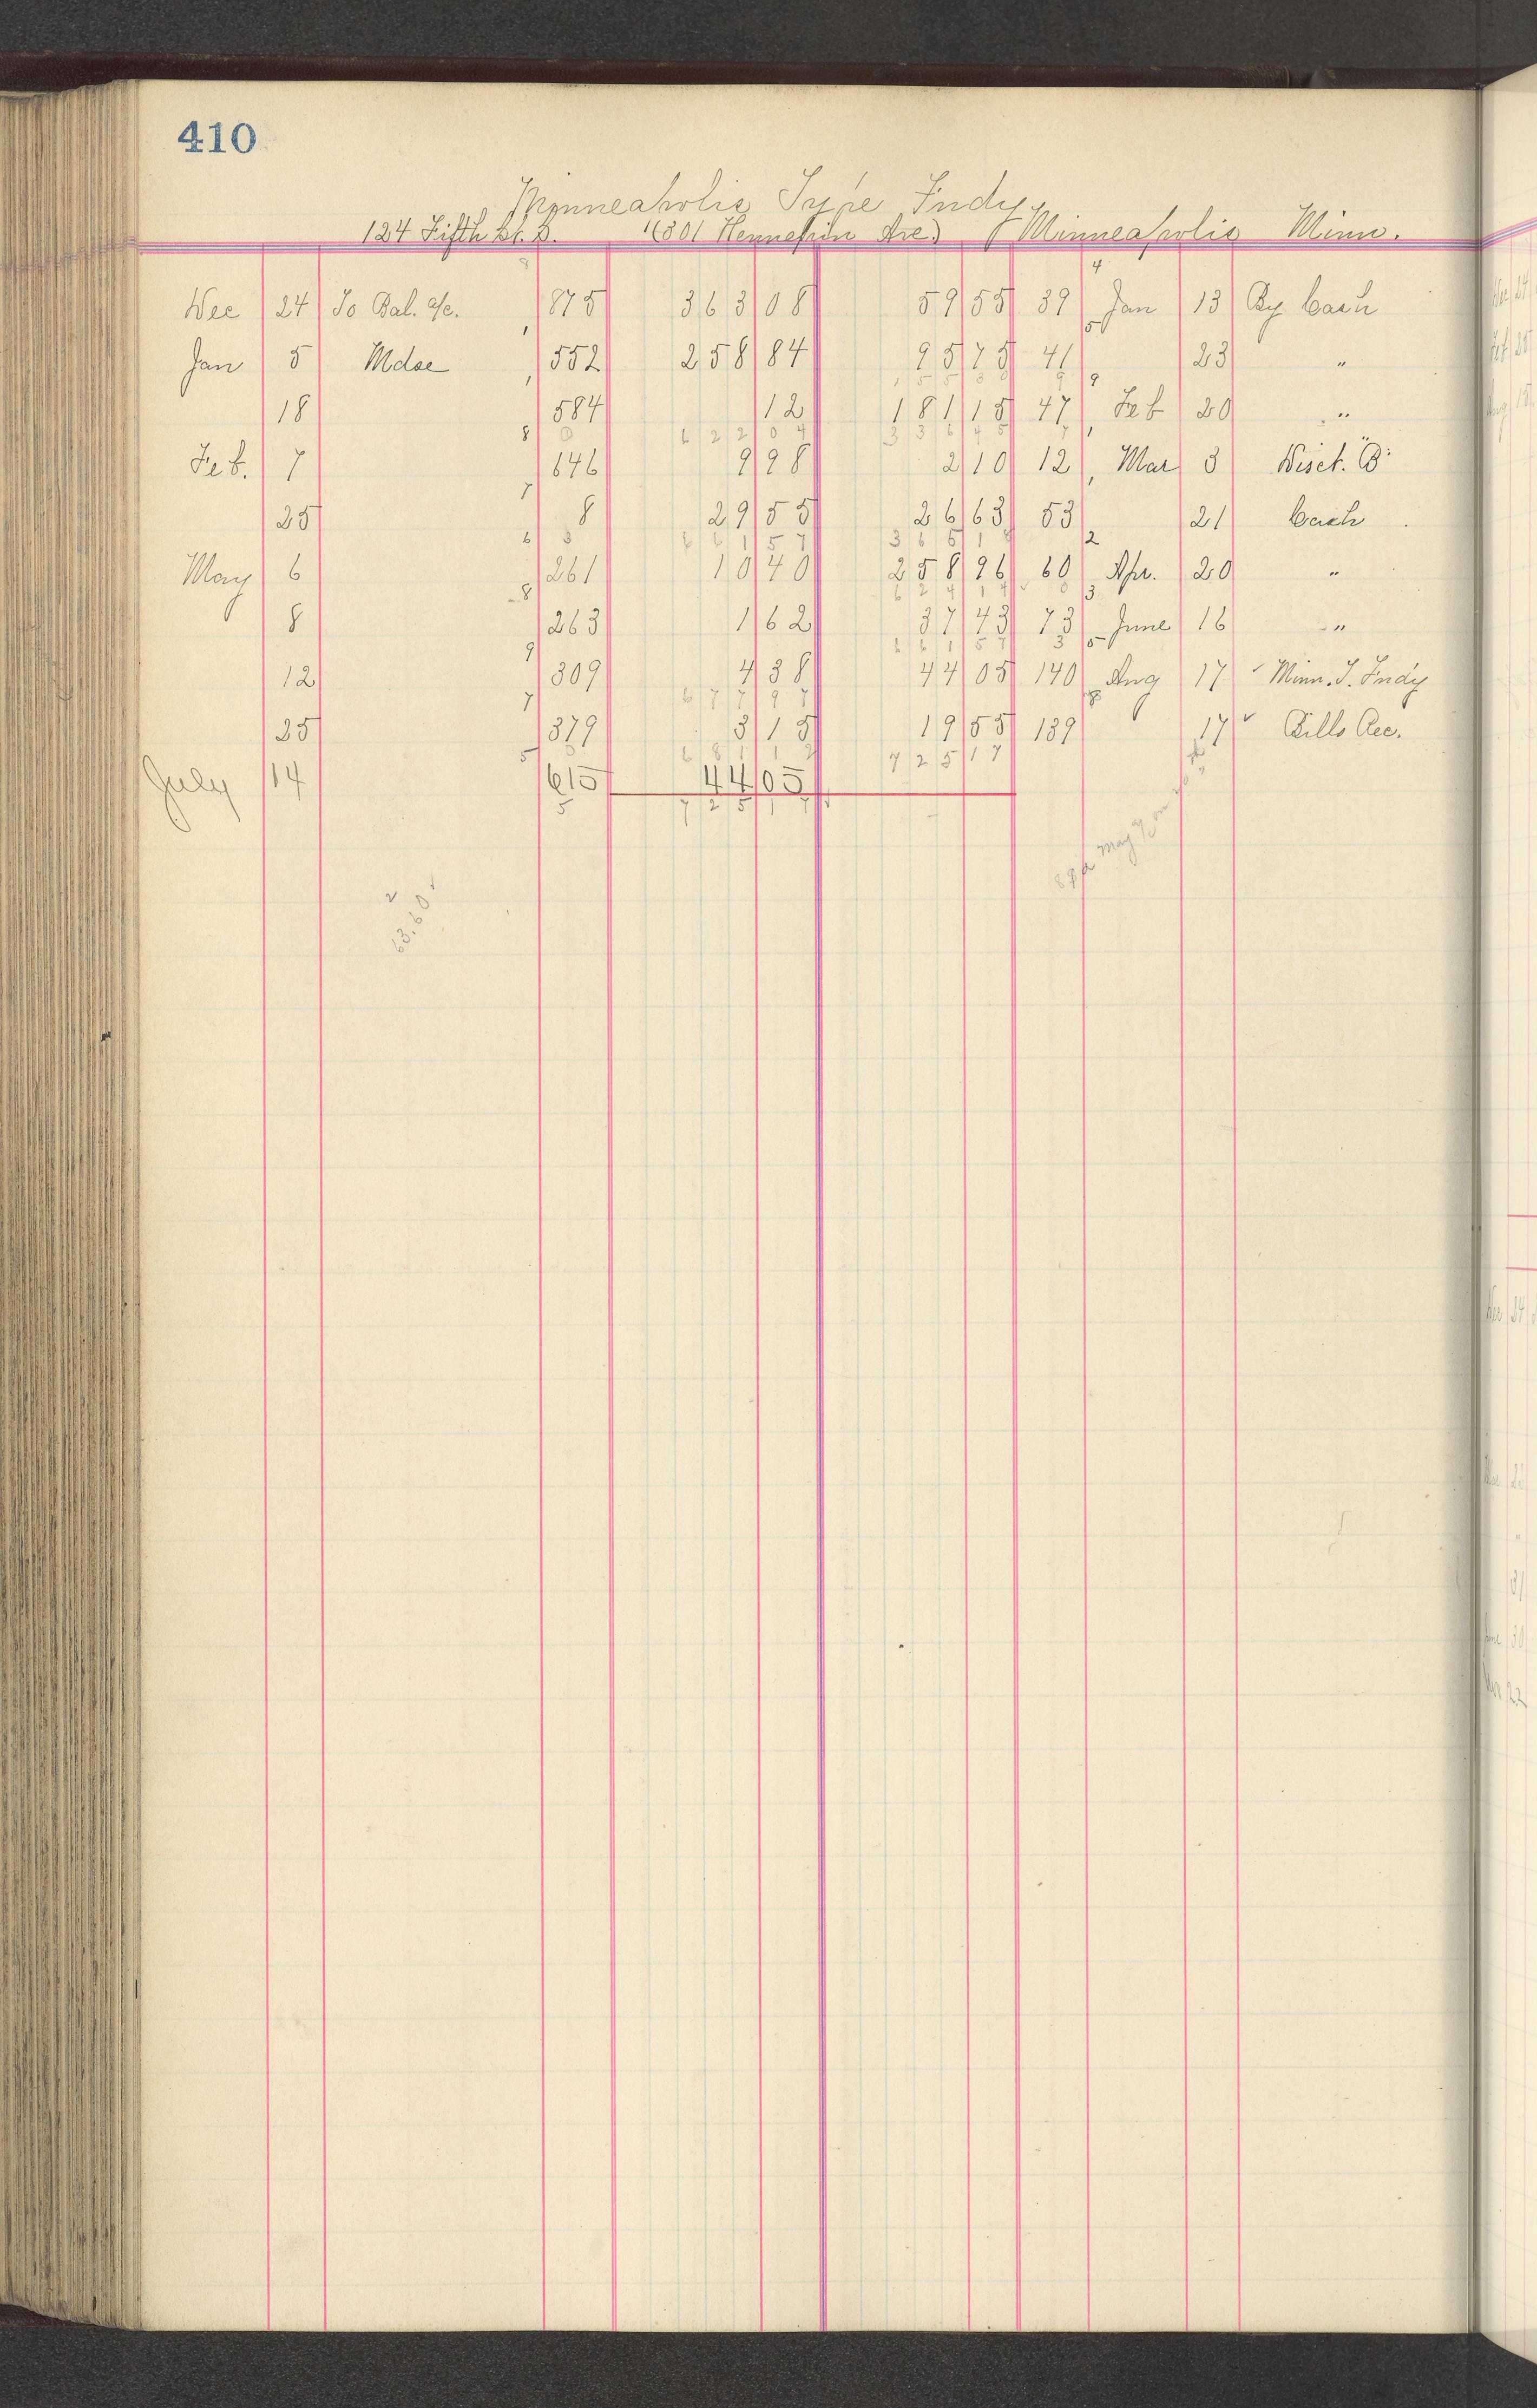 410
Minneapolis Type Fndy
124 Fifth St. S. (301 Hennepin Ave) Minneapolis Minn.
Dec 24 To Bal. a/c. 875 363 08 59 55 39 Jan 13 By Cash
Jan 5 Mdse 552 258 84 95 75 41 23 "
18 584 12 181 15 47 Feb 20 "
622 04 336 45
Feb. 7 646 9 98 2 10 12 Mar 3 Disct. "B"
25 8 29 55 26 63 53 21 Cash
661 57 365 18
May 6 261 10 40 258 96 60 Apr. 20 "
624 14
8 263 1 62 37 43 73 June 16 "
661 57
12 309 4 38 44 05 140 Aug 17 Minn. T. Fndy
677 97
25 379 3 15 19 55 139 17 Bills Rec.
681 12 725 17
July 14 615 44 05
725 17
63.60